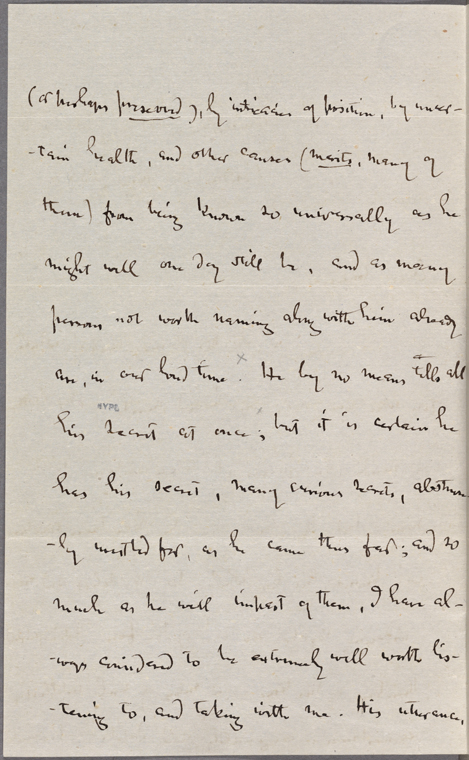 (or perhaps preserved), by intricacies of position, by uncer-
-tain health, and other causes (merits, many of
them) from being known so universally as he
might well one day still be, and as many
persons not worth naming along with him already
are, in our loud time. x He by no means tells all
HYPE
his secret at once; but it is certain he
has his secret, many curious secrets,
-ly wrestled for, as he came thus far; and so
much as he will impart of them, I have al-
-ways considered to be extremely well worth lis-
-tening to, and taking with me. His utterance,